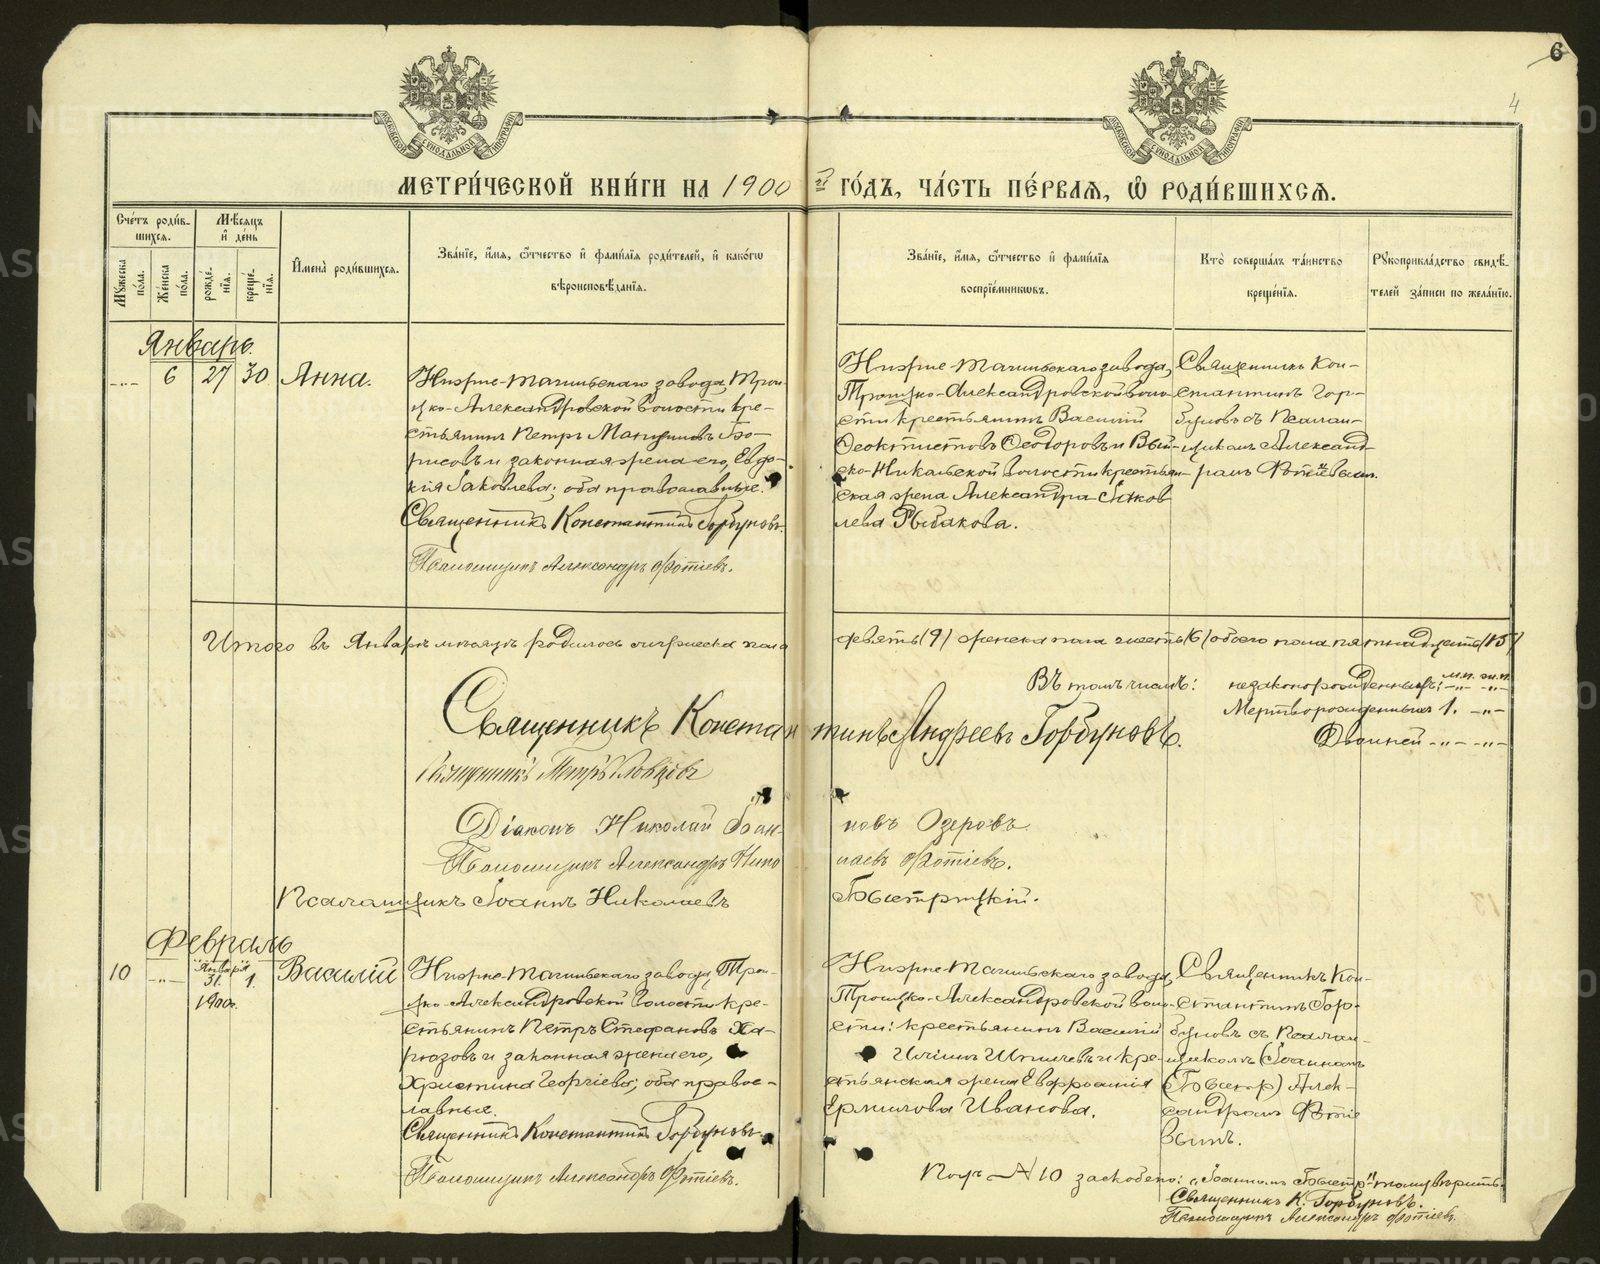 6
4
МОСКОВСКОЙ СѴНОДАЛЬНОЙ ТИПОГРАФІИ
МОСКОВСКОЙ СѴНОДАЛЬНОЙ ТИПОГРАФІИ
МЕТРИ́ЧЕСКОЙ КНИ́ГИ НА 1900 й ГО́ДЪ, ЧА́СТЬ ПЕ́РВАЯ, Ѽ РОДИ́ВШИХСЯ.
Сче́тъ роди́в-
шихся.
Мѣ́сяцъ
и҆ де́нь
Мꙋ́жеска по́ла.
Же́нска по́ла.
рожде́-
нїѧ.
креще́-
нїѧ.
И҆мена̀ роди́вшихся.
Зва́нїе, и҆́мѧ, ѻ҆́тчество и҆ фами́лїѧ роди́телей, и҆ како́гѡ
вѣроисповѣ́данїѧ.
Зва́нїе, и҆́мѧ, ѻ҆́тчество и҆ фами́лїѧ
воспрїе́мникѡвъ.
Кто̀ соверша́лъ та́инство
креще́нїѧ.
Рꙋкоприкла́дство свидѣ́-
телей за́писи по жела́нїю.
Январь.
-„-
6
27
30
Анна.
Нижне-тагильскаго завода, Трои-
цко-Александровской волости кре-
стьянинъ Петръ Бо-
рисовъ и законная жена его, Евдо-
кія Іаковлева; оба православные.
Священникъ Константинъ Горбуновъ.
Псаломщикъ Александръ Фотіевъ.
Нижне-тагильскаго завода,
Троицко-Александровской воло-
сти крестьянинъ Василій
Ѳеоктистовъ Ѳеодоровъ и Вый-
ско-Никольской волости крестьян-
ская жена Александра Іаков
лева Рыбакова.
Священникъ Кон-
стантинъ Гор-
буновъ съ Псалом-
щикомъ Александ-
ромъ Фотіевымъ.
Итого въ Январѣ мѣсяцѣ родилось мужеска пола девять (9) женска пола шесть (6) обоего пола пятнадцать (15)
Въ томъ числѣ: незаконорожденныхъ: м.п. -„- ж.п. -„-
Мертворожденныхъ 1. -„-
Двоиней -„- -„-
Священникъ Константинъ Андреевъ Горбуновъ.
Священникъ Петръ Словцовъ
Діаконъ Николай Іоан- новъ Озеровъ
Псаломщикъ Александръ Нико лаевъ Фотіевъ.
Псаломщикъ Іоаннъ Николаевъ Быстрицкій.
Февраль
10
-„-
"Января"
31.
1900г.
1.
Василій
Нижне-тагильскаго завода, Трои-
цко-Александровской волости кре-
стьянинъ Петръ Стефановъ Ха-
рюзовъ и законная жена его,
Христина Георгіева; оба право-
славные.
Священникъ Константинъ Горбуновъ.
Псаломщикъ Александръ Фотіевъ.
Нижне-тагильскаго завода,
Троицко-Александровской воло-
сти: крестьянинъ Василій
Иліинъ и кре-
стьянская жена Евфросинія
Ермилова Иванова.
Священникъ Кон-
стантинъ Гор-
буновъ съ Псалом-
щикомъ (Іоанномъ
Быстр) Алек-
сандромъ Фотіе
вымъ.
Подъ № 10 заскоблено: „Іоанномъ Быстр" тому вѣрить.
Священникъ К. Горбуновъ.
Псаломщикъ Александръ Фотіевъ.